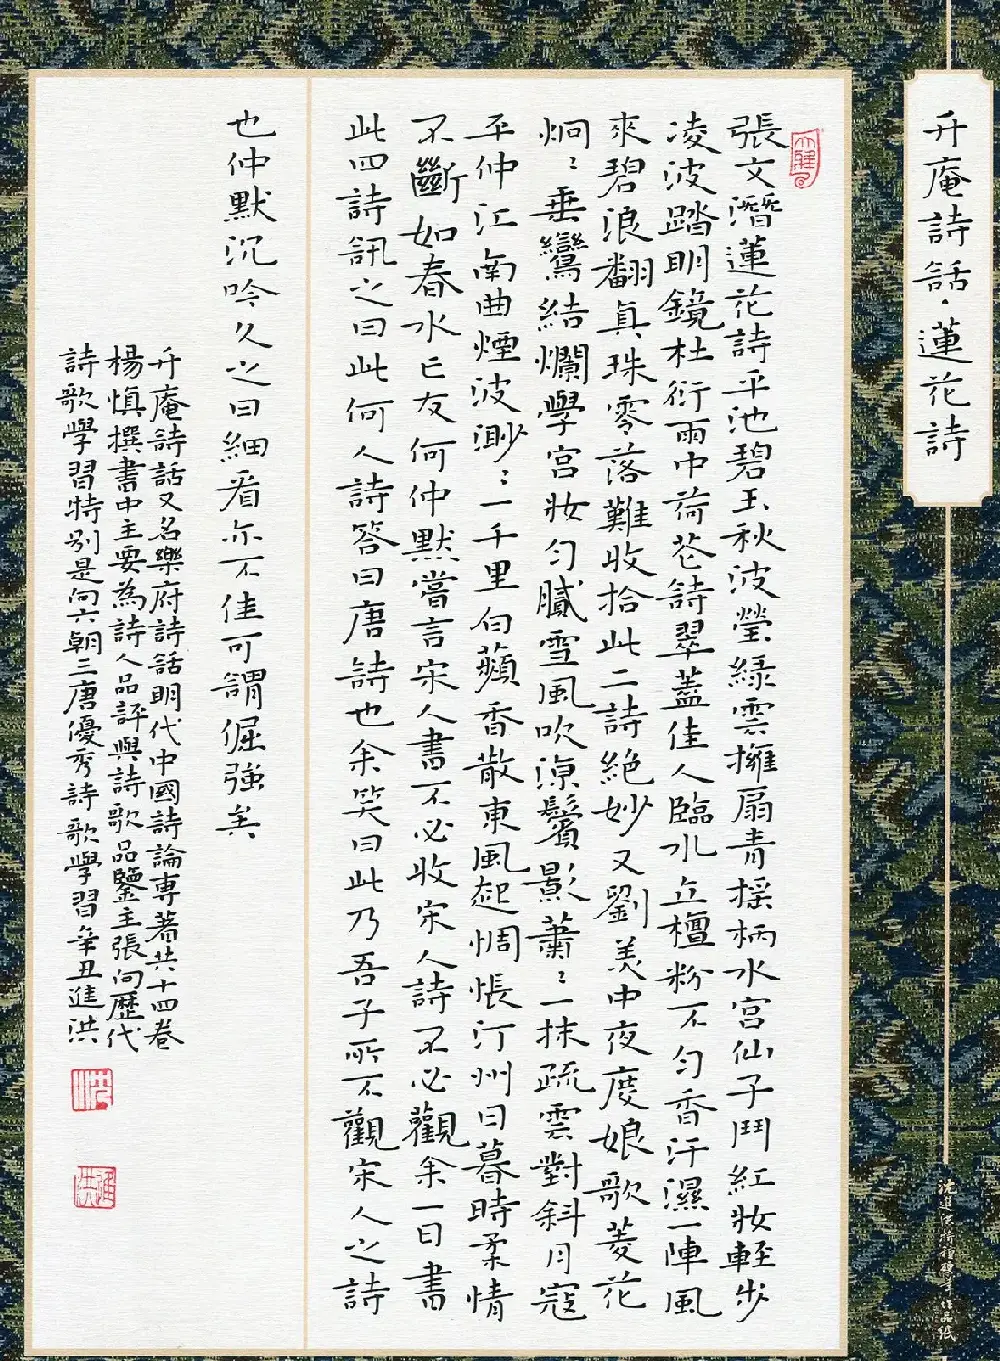 升庵詩話·蓮花詩
張文潛蓮花詩平池碧玉秋波瑩綠雲擁扇青搖柄水宮仙子鬥紅妝輕步
凌波踏明鏡杜衍雨中荷花詩翠蓋佳人臨水立檀粉不勻香汗濕一陣風
來碧浪翻真珠零落難收拾此二詩絕妙又劉美中夜度娘歌菱花
炯〻垂鸞結爛學宮妝勻膩雪風吹涼鬢影蕭〻一抹疏雲對斜月寇
平仲江南曲煙波渺〻一千里白蘋香散東風起惆悵汀州日暮時柔情
不斷如春水亡友何仲默嘗言宋人書不必收宋人詩不必觀余一日書
此四詩訊之曰此何人詩答曰唐詩也余笑曰此乃吾子所不觀宋人之詩
也仲默沉吟久之曰細看亦不佳可謂倔強矣
升庵詩話又名樂府詩話明代中國詩論專著共十四卷
楊慎撰書中主要為詩人品評與詩歌品鑒主張向歷代
詩歌學習特別是向六朝三唐優秀詩歌學習辛丑進洪